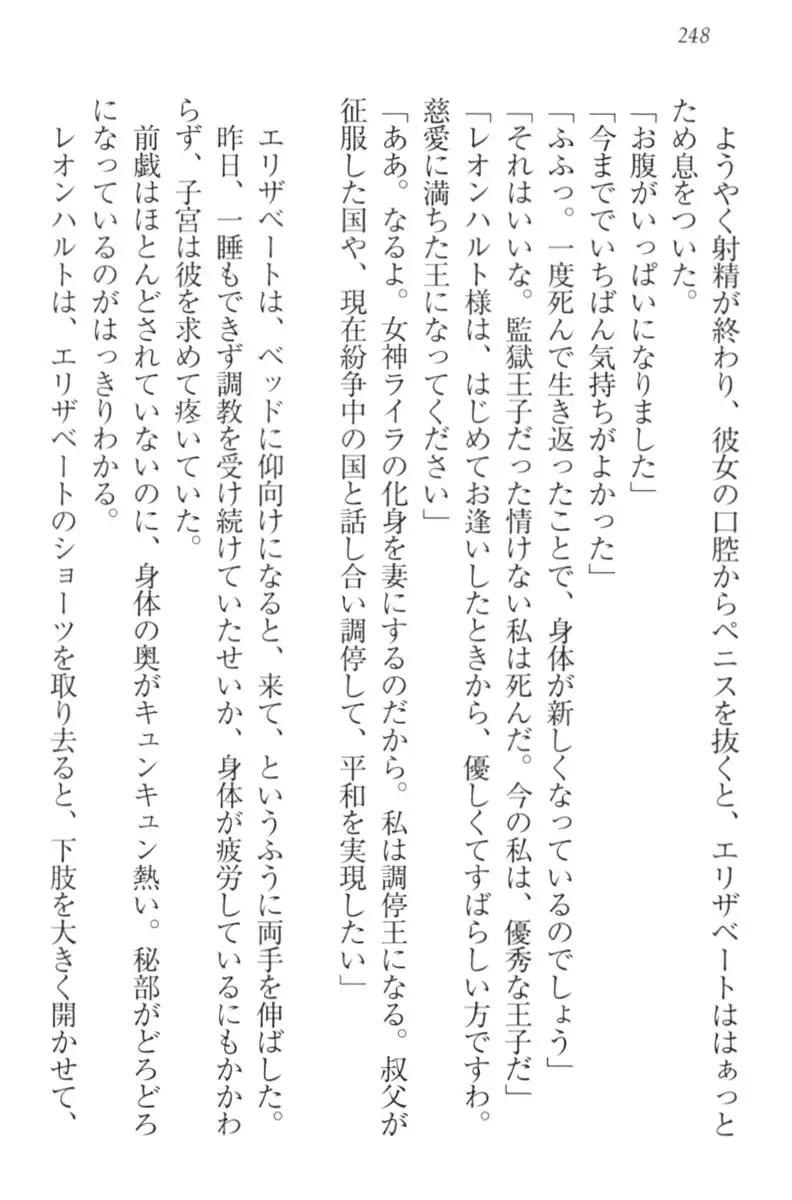 248
　ようやく射精が終わり、彼女の口腔からペニスを抜くと、エリザベートははぁっと
ため息をついた。
「お腹がいっぱいになりました」
「今まででいちばん気持ちがよかった」
「ふふっ。一度死んで生き返ったことで、身体が新しくなっているのでしょう」
「それはいいな。監獄王子だった情けない私は死んだ。今の私は、優秀な王子だ」
「レオンハルト様は、はじめてお逢いしたときから、優しくてすばらしい方ですわ。
慈愛に満ちた王になってください」
「ああ。なるよ。女神ライラの化身を妻にするのだから。私は調停王になる。叔父が
征服した国や、現在紛争中の国と話し合い調停して、平和を実現したい」
　エリザベートは、ベッドに仰向けになると、来て、というふうに両手を伸ばした。
　昨日、一睡もできず調教を受け続けていたせいか、身体が疲労しているにもかかわ
らず、子宮は彼を求めて疼いていた。
　前戯はほとんどされていないのに、身体の奥がキュンキュン熱い。秘部がどろどろ
になっているのがはっきりわかる。
　レオンハルトは、エリザベートのショーツを取り去ると、下肢を大きく開かせて、